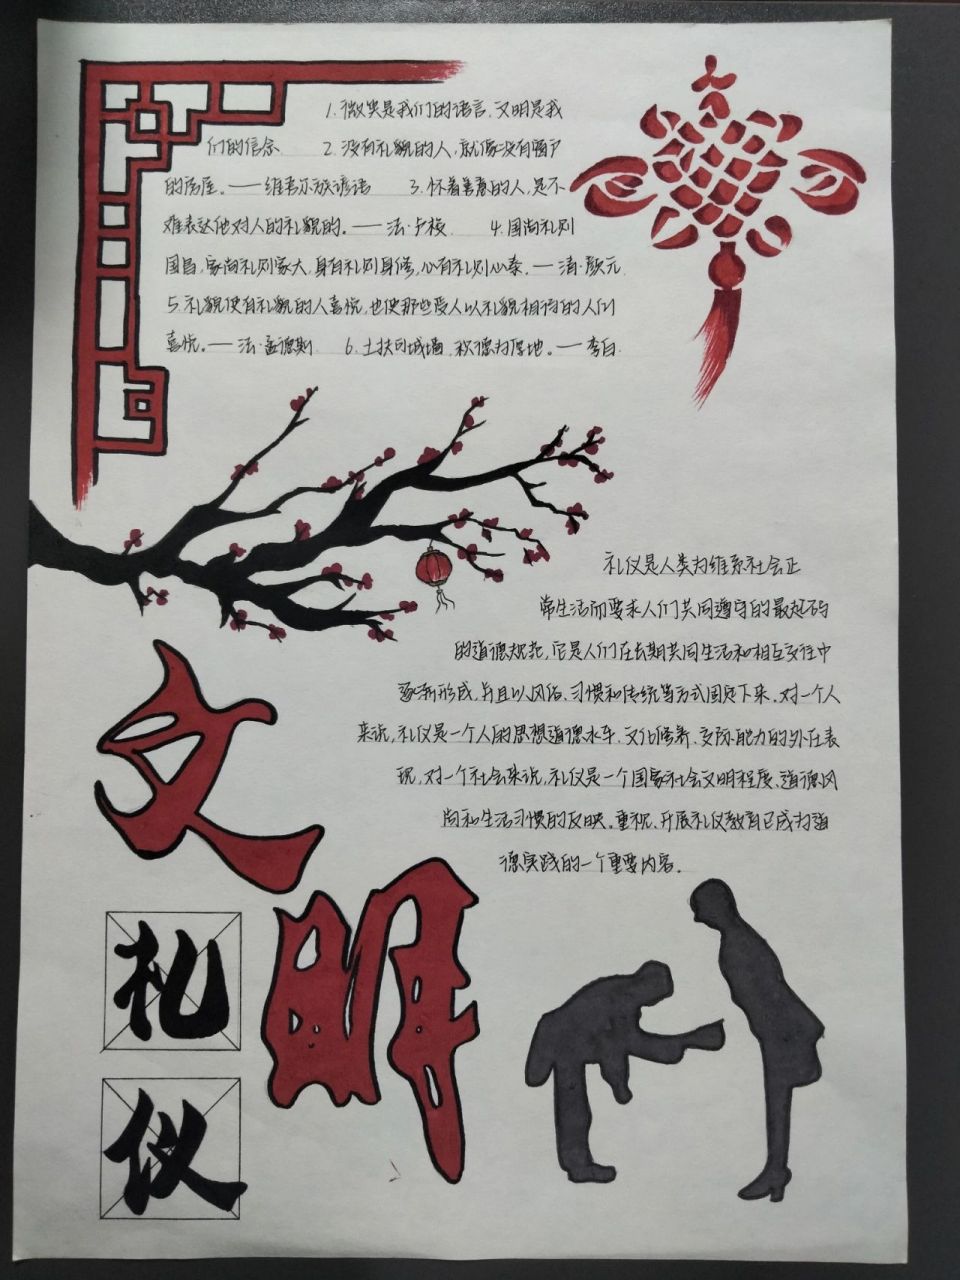 1.微笑是我们的语言，文明是我
们的信念 2.没有礼貌的人，就像没有窗户
的房屋。——维吾尔族谚语 3.怀着善意的人，是不
难表达他对人的礼貌的。——法·卢梭 4.国尚礼则
国昌，家尚礼则家大，身有礼则身修，心有礼则心泰。——清·颜元
5.礼貌使有礼貌的人喜悦，也使那些受人以礼貌相待的人们
喜悦。——法·孟德斯 6.土扶可城墙，积德为厚地。——李白
礼仪是人类为维系社会正
常生活而要求人们共同遵守的最起码
的道德规范，它是人们在长期共同生活和相互交往中
逐渐形成，并且以风俗、习惯和传统等方式固定下来，对一个人
来说，礼仪是一个人的思想道德水平、文化修养、交际能力的外在表
现，对一个社会来说，礼仪是一个国家社会文明程度、道德风
尚和生活习惯的反映。重视、开展礼仪教育已成为道
德实践的一个重要内容。
文
明
礼
仪